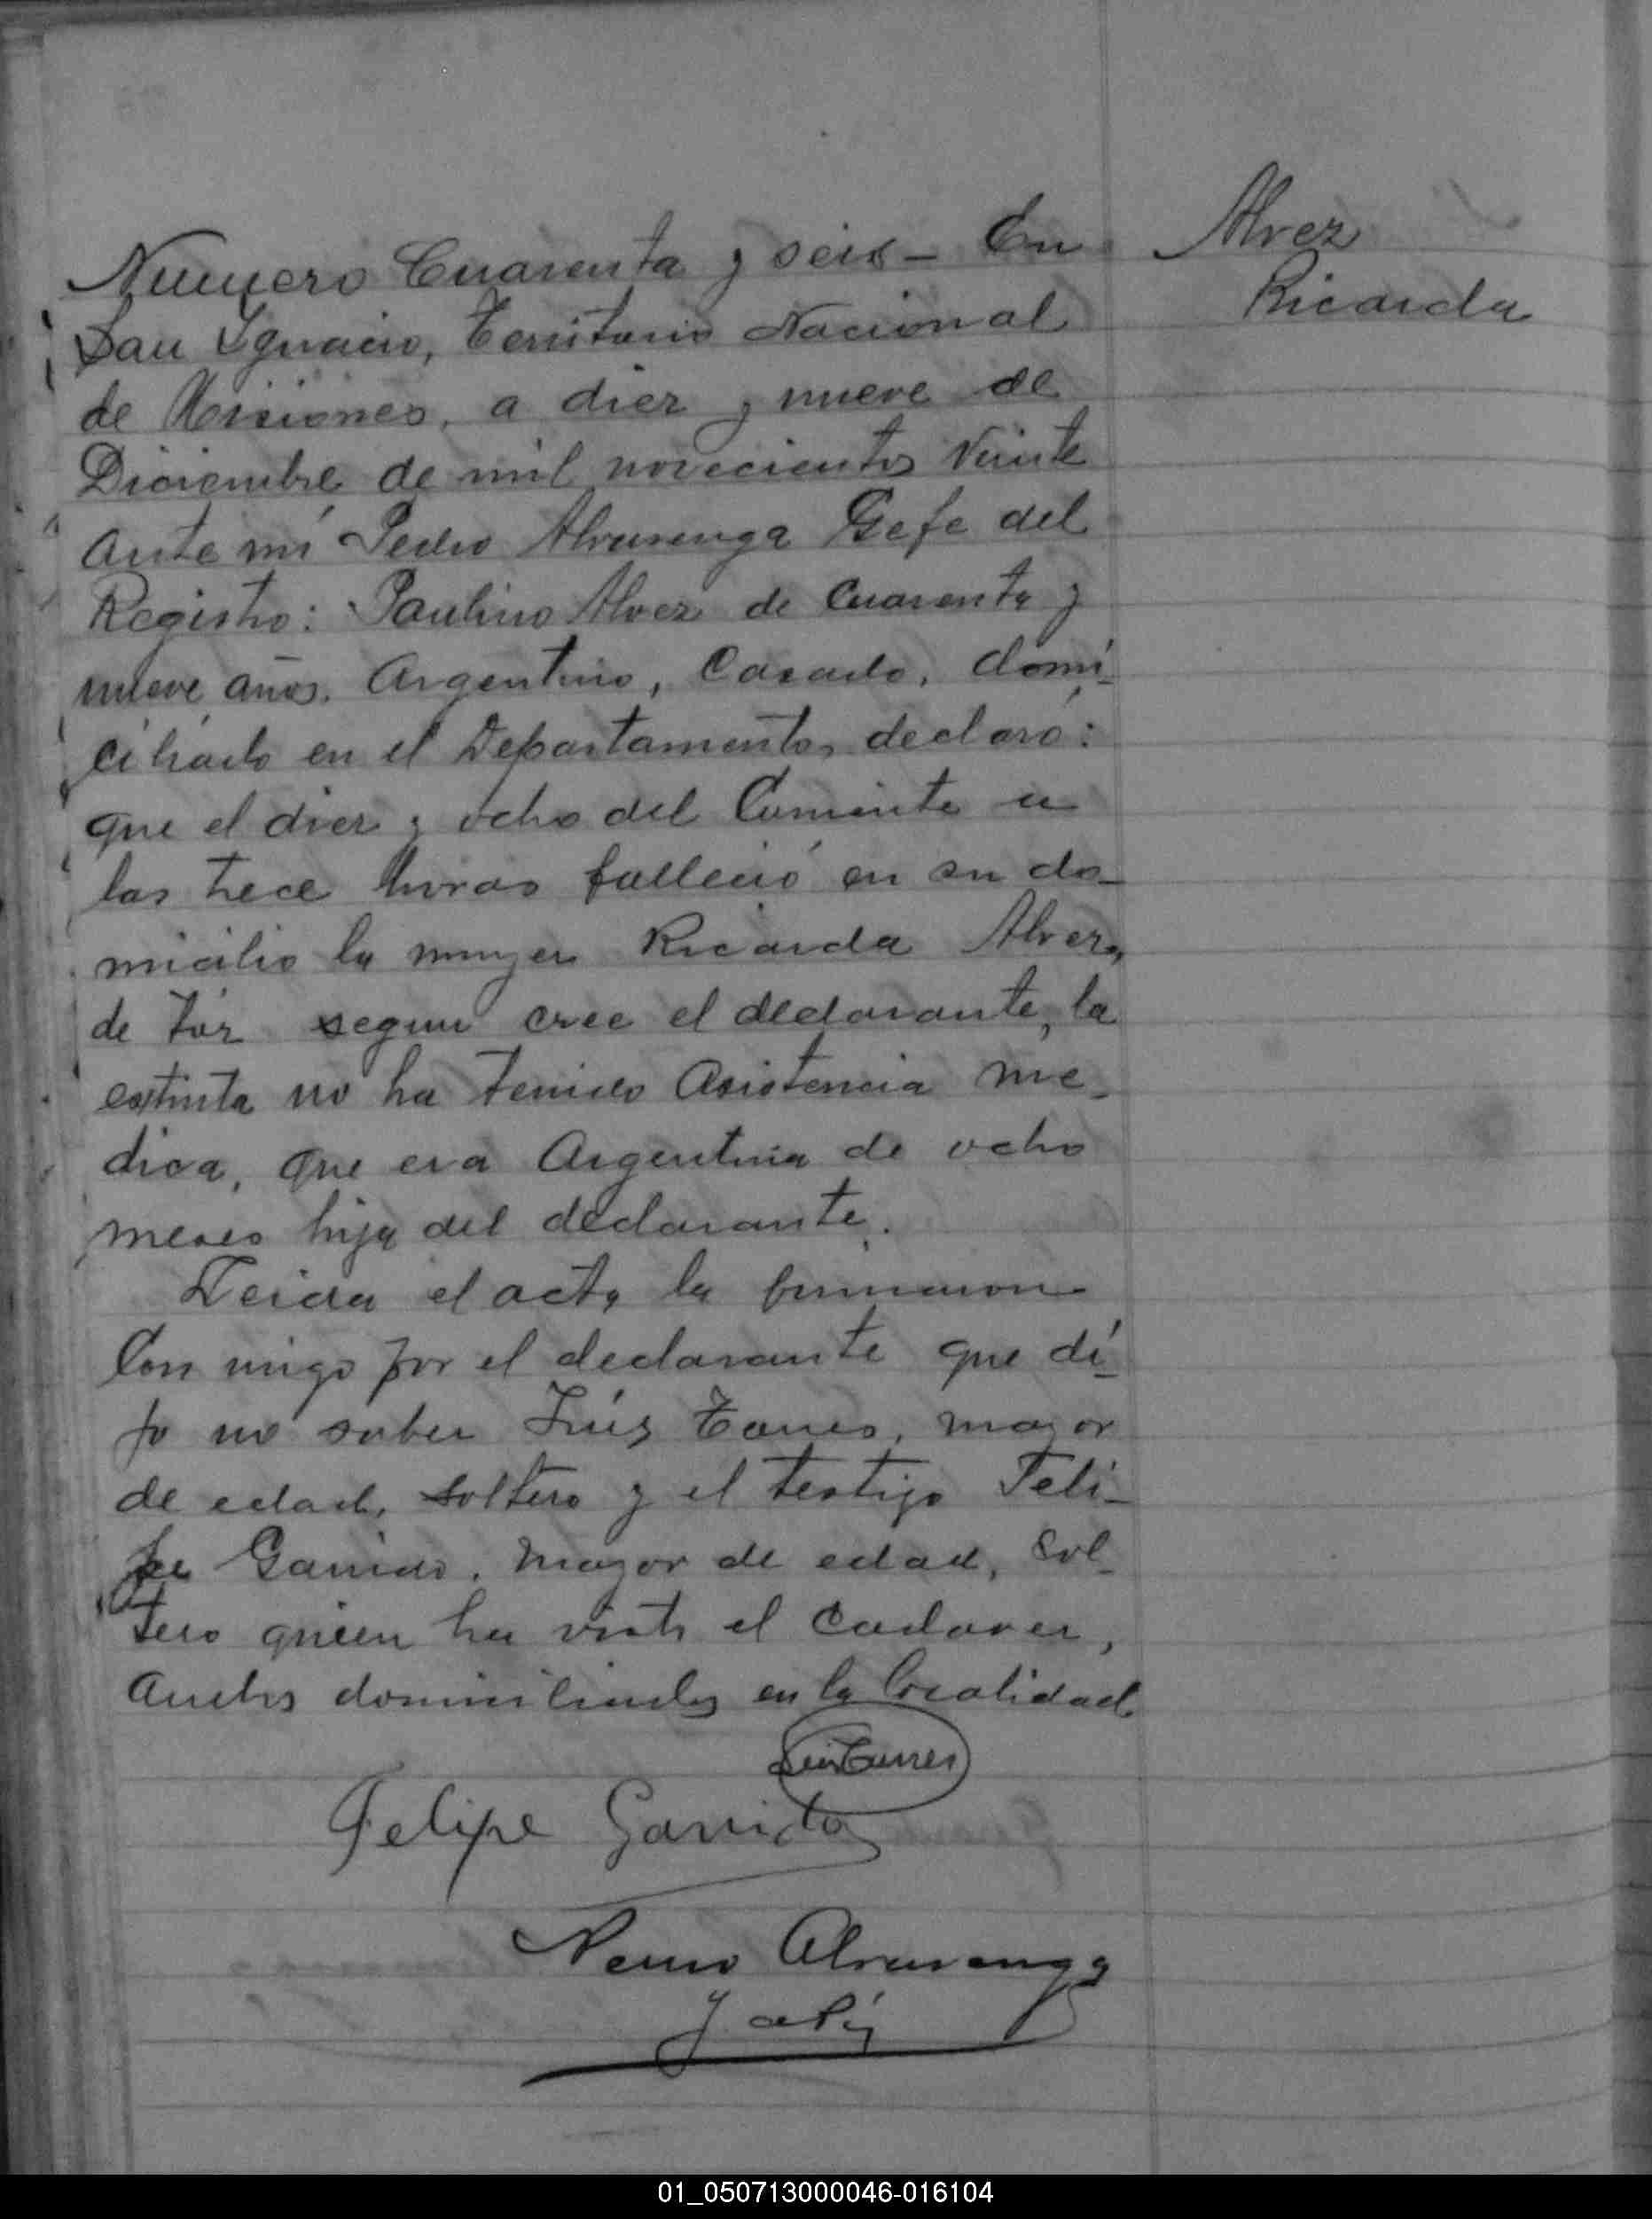 Alvez
Ricarda
Numero Cuarenta y seis - En
San Ygnacio, Territorio Nacional
de Misiones, a diez y nueve de
Diciembre de mil novecientos Veinte
ante mi Pedro Alvarenga Gefe del
Registro: Paulino Alvez de Cuarenta y
nueve años. Argentino, Casado, domi-
ciliado en el Departamento, declaró:
que el diez y ocho del Corriente a
las trece horas falleció en su do-
micilio la mujer Ricarda Alvez,
de tos segun cree el declarante, la
extinta no ha tenido Asistencia me-
dica, que era Argentina de ocho
meses hija del declarante.
Leida el acta la firmaron
Con migo por el declarante que di-
jo no saber Luis Torres, mayor
de edad, soltero y el testigo Feli-
pe Garrido, mayor de edad, sol-
tero quien ha visto el Cadaver,
ambos domiciliados en la localidad
Luis Torres
Felipe Garrido
Pedro Alvarenga
01_050713000046-016104